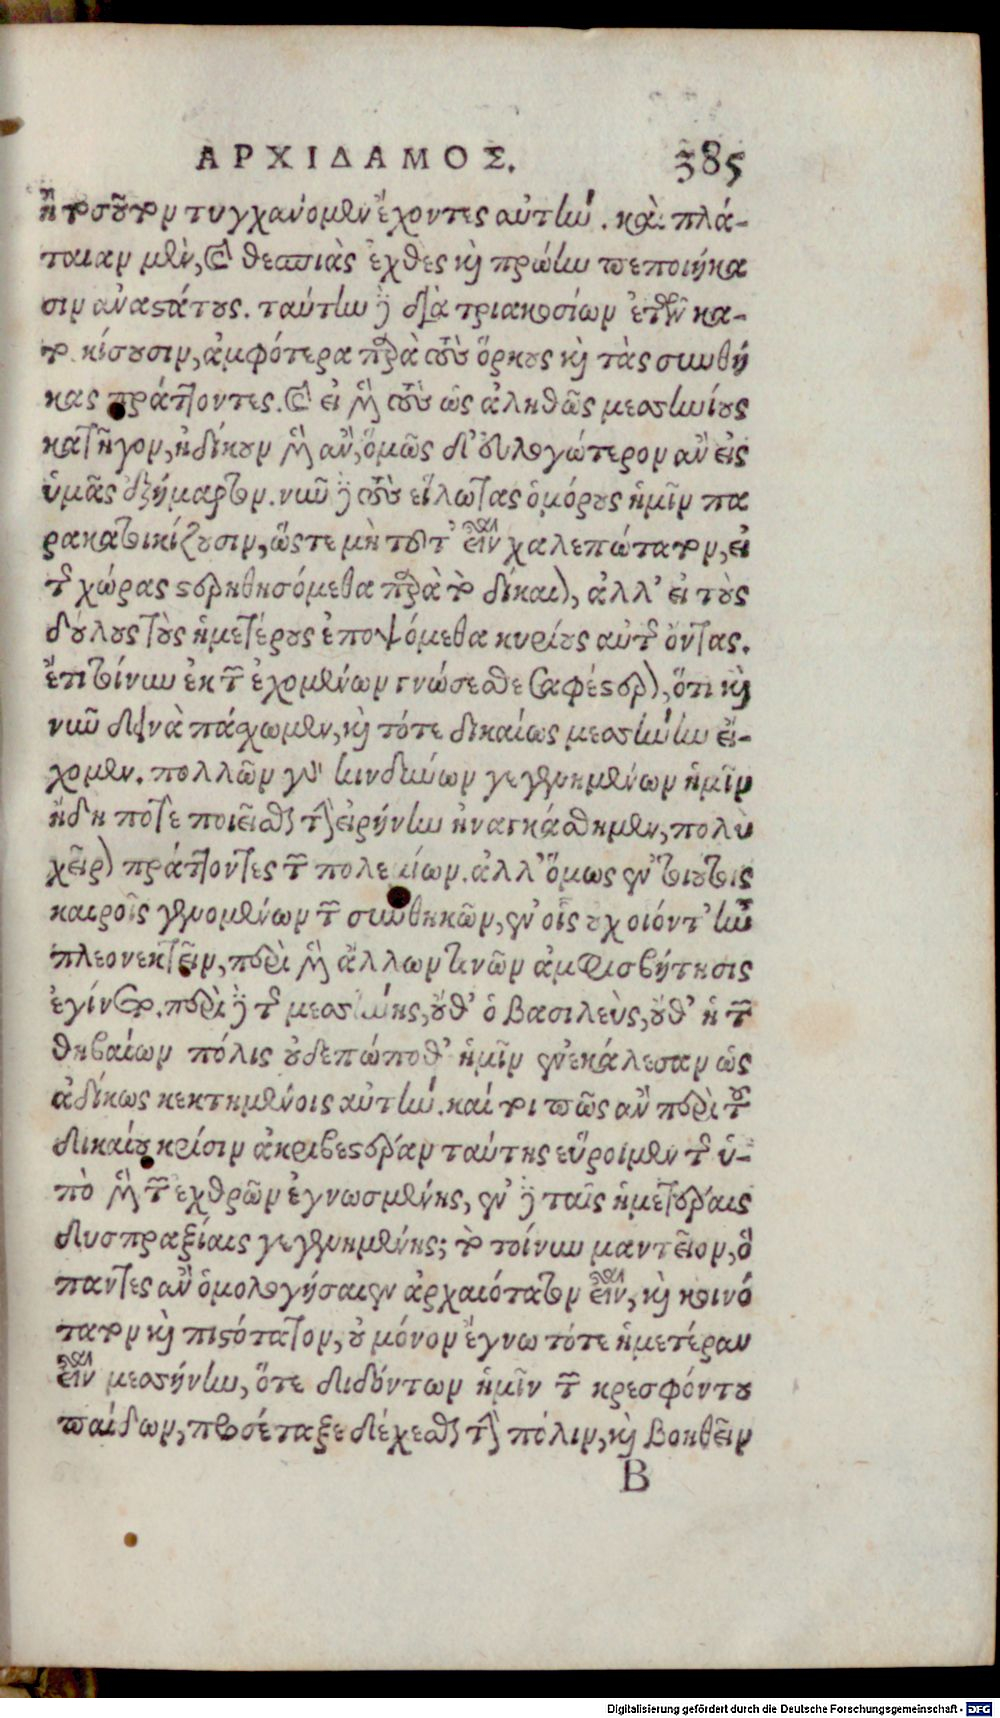 ΑΡΧΙΔΑΜΟΣ. 385
ἢ τοσοῦτον τυγχάνομεν ἔχοντες αὐτὴν. καὶ πλά-
ταιαν μὲν, καὶ θεσπιὰς ἐχθὲς καὶ πρώην πεποιήκα
σιν ἀναστάτους. ταύτην δὲ διὰ τριακοσίων ἐτῶν κα-
τοικίσουσιν, ἀμφότερα παρὰ τοὺς ὅρκους καὶ τὰς συνθή
κας πράττοντες. καὶ εἰ μὲν τοὺς ὡς ἀληθῶς μεσσηνίους
κατῆγον, ἠδίκουν μὲν ἂν, ὅμως δ' εὐλογώτερον ἂν εἰς
ὑμᾶς ἐξήμαρτον. νῦν δὲ τοὺς εἵλωτας ὁμόρους ἡμῖν πα
ρακατοικίζουσιν, ὥστε μὴ τοῦτ' εἶναι χαλεπώτατον, εἰ
τῆς χώρας στερηθησόμεθα παρὰ τὸ δίκαιον, ἀλλ' εἰ τοὺς
δούλους τοὺς ἡμετέρους ἐποψόμεθα κυρίους αὐτῆς ὄντας.
ἔτι τοίνυν ἐκ τῶν ἐχομένων γνώσεσθε σαφέστερον, ὅτι καὶ
νῦν δεινὰ πάσχωμεν, καὶ τότε δικαίως μεσσήνην εἴ-
χομεν. πολλῶν γὰρ κινδύνων γεγενημένων ἡμῖν
ἤδη ποτε ποιεῖσθαι τὴν εἰρήνην ἠναγκάσθημεν, πολὺ
χεῖρον πράττοντες τῶν πολεμίων. ἀλλ' ὅμως ἐν τοιούτοις
καιροῖς γενομένων τῶν συνθηκῶν, ἐν οἷς οὐχ οἷόντ' ἦν
πλεονεκτεῖν, περὶ μὲν ἄλλων τινῶν ἀμφισβήτησις
ἐγίνετο. περὶ δὲ τῆς μεσσήνης, οὔθ' ὁ βασιλεὺς, οὔθ' ἡ τῶν
θηβαίων πόλις οὐδεπώποθ' ἡμῖν ἐνεκάλεσαν ὡς
ἀδίκως κεκτημένοις αὐτήν. καί τοι πῶς ἂν περὶ τοῦ
δικαίου κρίσιν ἀκριβεστέραν ταύτης εὕροιμεν τῆς ὑ-
πὸ μὲν τῶν ἐχθρῶν ἐγνωσμένης, ἐν δὲ ταῖς ἡμετέραις
δυσπραξίαις γεγενημένης; τὸ τοίνυν μαντεῖον, ὃ
πάντες ἂν ὁμολογήσαιεν ἀρχαιότατον εἶναι, καὶ κοινό
τατον καὶ πιστότατον, οὐ μόνον ἔγνω τότε ἡμετέραν
εἶναι μεσσήνην, ὅτε διδόντων ἡμῖν τῶν κρεσφόντου
παίδων, προσέταξε δέχεσθαι τὴν πόλιν, καὶ βοηθεῖν
B
Digitalisierung gefördert durch die Deutsche Forschungsgemeinschaft - DFG